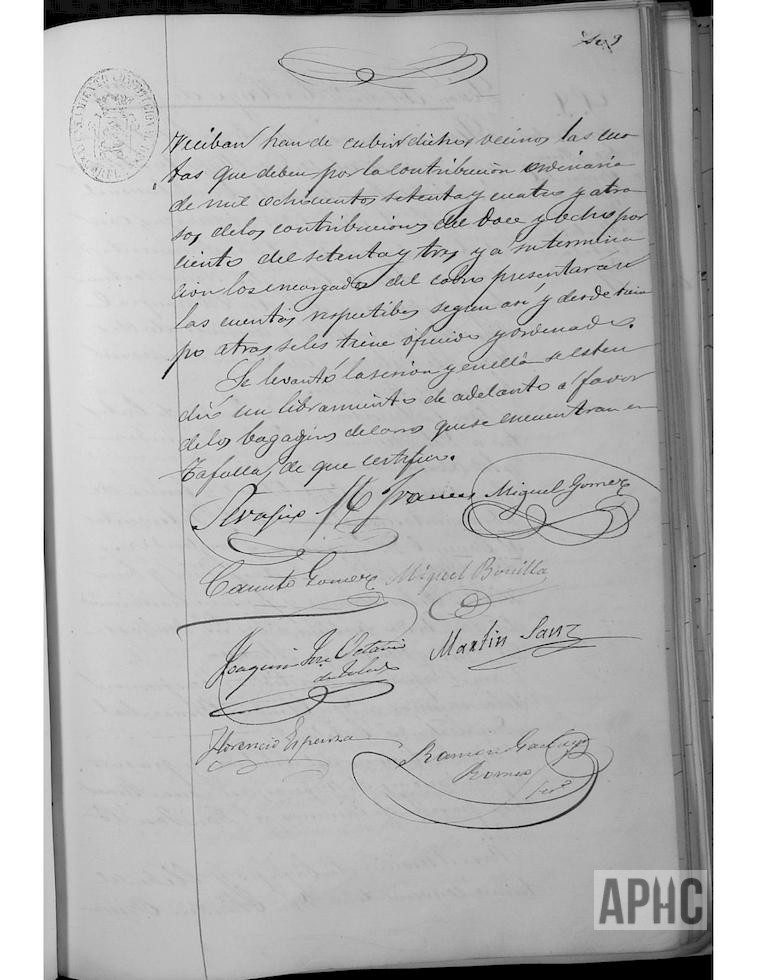 reciban han de cubrir dichos vecinos las cuo
tas que deben por la contribucion ordinaria
de mil ochocientos setenta y cuatro y atra
sos, de los contribuciones del doce y ocho por
ciento del setenta y tres y a su termina
cion los encargados del cobro presentaran
las cuentas respectibas segun asi y desde tiem
po atras se les tiene oficiado y ordenado.
Se levantó la sesion y en ella se esten
dió un libramiento de adelanto a favor
de los bagageros de carro que se encuentran en
Tafalla, de que certifico.
Serafin Mz Frances Miguel Gomez
Canuto Gomez Miguel Bonilla
Joaquin José Octavio
de Toledo
Martin Sanz
Florencio Esparza
Ramon
Romeo
Srio
APHC